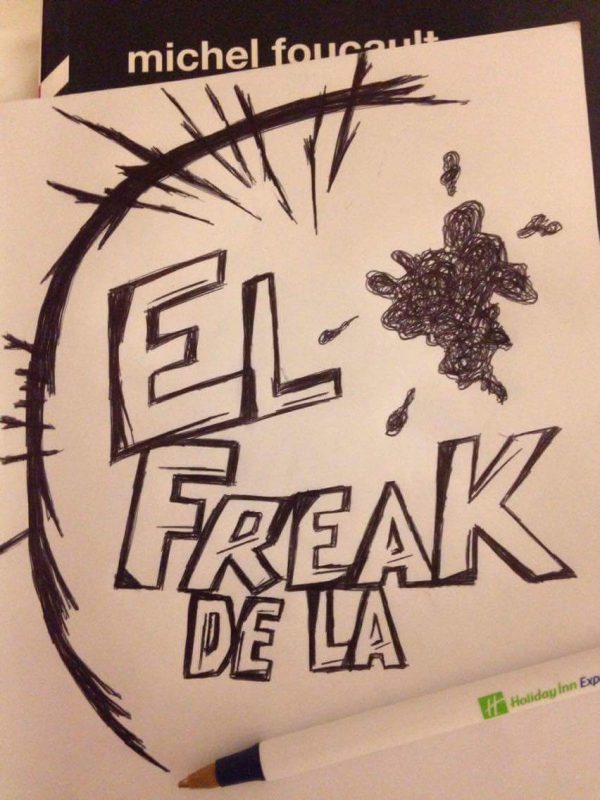 michel foucault
EL
FREAK
DE LA
Holiday Inn Exp